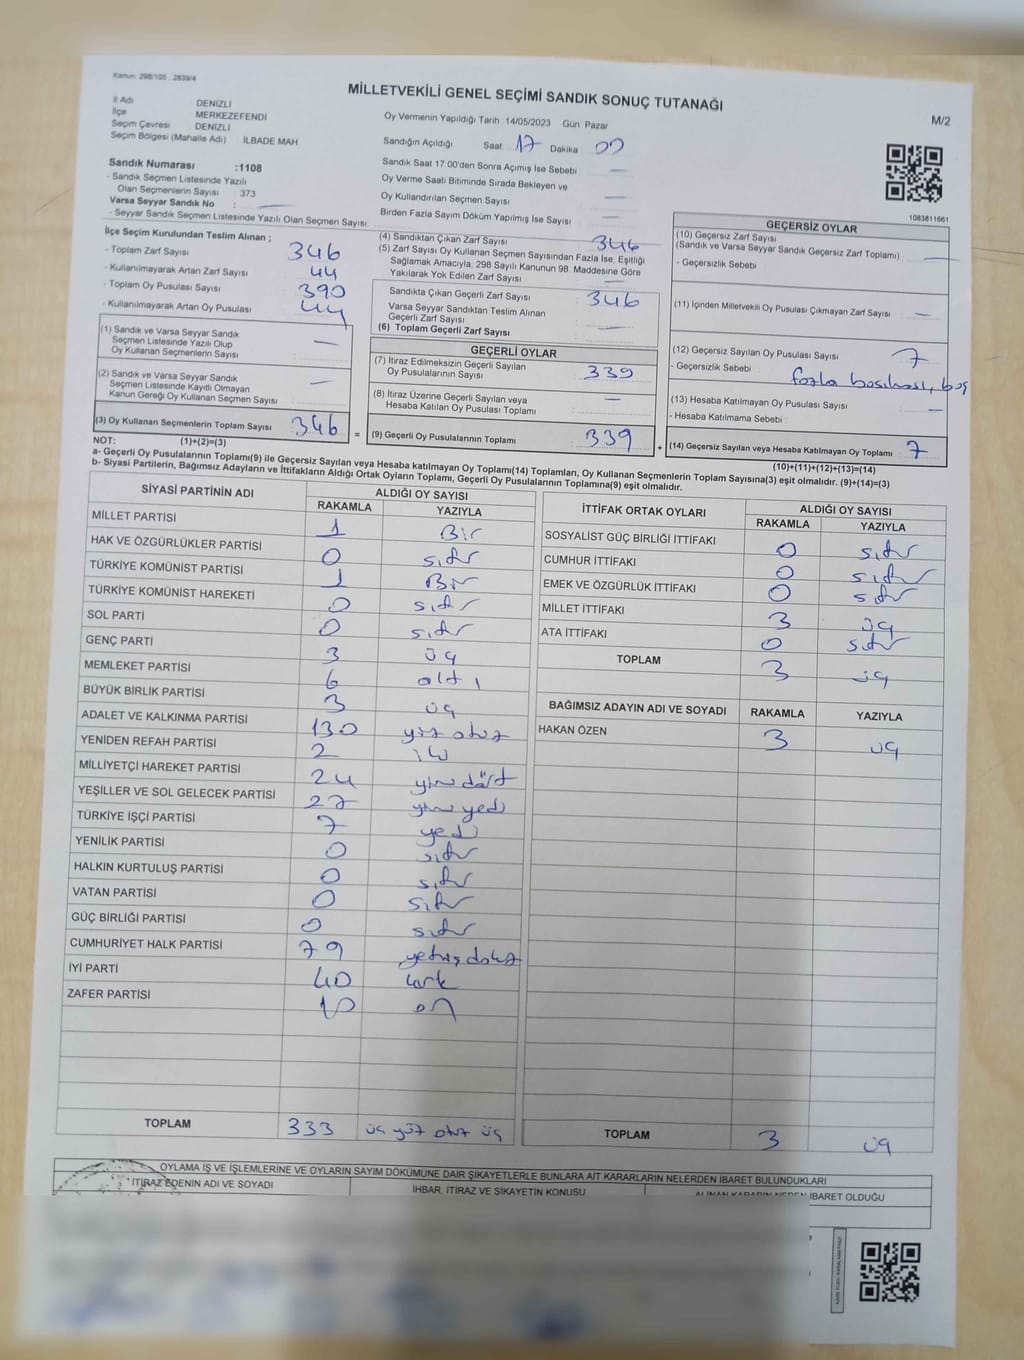 Kanun: 298/105 , 2839/4
MİLLETVEKİLİ GENEL SEÇİMİ SANDIK SONUÇ TUTANAĞI
M/2
İl Adı DENİZLİ
İlçe MERKEZEFENDİ
Seçim Çevresi DENİZLİ
Seçim Bölgesi (Mahalle Adı) İLBADE MAH.
Oy Vermenin Yapıldığı Tarih :14/05/2023 Gün: Pazar
Sandığın Açıldığı Saat 17 Dakika 00
Sandık Saat 17:00'den Sonra Açımış İse Sebebi
Oy Verme Saati Bitiminde Sırada Bekleyen ve
Oy Kullandırılan Seçmen Sayısı
Birden Fazla Sayım Döküm Yapılmış İse Sayısı
1083811661
Sandık Numarası :1108
- Sandık Seçmen Listesinde Yazılı
Olan Seçmenlerin Sayısı : 373
Varsa Seyyar Sandık No :
- Seyyar Sandık Seçmen Listesinde Yazılı Olan Seçmen Sayısı
İlçe Seçim Kurulundan Teslim Alınan ;
- Toplam Zarf Sayısı 346
- Kullanılmayarak Artan Zarf Sayısı 44
- Toplam Oy Pusulası Sayısı 390
- Kullanılmayarak Artan Oy Pusulası 44
(1) Sandık ve Varsa Seyyar Sandık
Seçmen Listesinde Yazılı Olup
Oy Kullanan Seçmenlerin Sayısı —
(2) Sandık ve Varsa Seyyar Sandık
Seçmen Listesinde Kayıtlı Olmayan
Kanun Gereği Oy Kullanan Seçmen Sayısı —
(3) Oy Kullanan Seçmenlerin Toplam Sayısı 346
(4) Sandıktan Çıkan Zarf Sayısı 346
(5) Zarf Sayısı Oy Kullanan Seçmen Sayısından Fazla İse, Eşitliği
Sağlamak Amacıyla; 298 Sayılı Kanunun 98. Maddesine Göre
Yakılarak Yok Edilen Zarf Sayısı —
Sandıkta Çıkan Geçerli Zarf Sayısı 346
Varsa Seyyar Sandıktan Teslim Alınan
Geçerli Zarf Sayısı
(6) Toplam Geçerli Zarf Sayısı —
GEÇERLİ OYLAR
(7) İtiraz Edilmeksizin Geçerli Sayılan
Oy Pusulalarının Sayısı : 339
(8) İtiraz Üzerine Geçerli Sayılan veya
Hesaba Katılan Oy Pusulası Toplamı —
= (9) Geçerli Oy Pusulalarının Toplamı : 339
GEÇERSİZ OYLAR
(10) Geçersiz Zarf Sayısı
(Sandık ve Varsa Seyyar Sandık Geçersiz Zarf Toplamı) —
- Geçersizlik Sebebi
(11) İçinden Milletvekili Oy Pusulası Çıkmayan Zarf Sayısı —
(12) Geçersiz Sayılan Oy Pusulası Sayısı 7
- Geçersizlik Sebebi fazla basılması, boş
(13) Hesaba Katılmayan Oy Pusulası Sayısı —
- Hesaba Katılmama Sebebi
+ (14) Geçersiz Sayılan veya Hesaba Katılmayan Oy Toplamı 7
NOT: (1)+(2)=(3) (10)+(11)+(12)+(13)=(14)
a- Geçerli Oy Pusulalarının Toplamı(9) ile Geçersiz Sayılan veya Hesaba katılmayan Oy Toplamı(14) Toplamları, Oy Kullanan Seçmenlerin Toplam Sayısına(3) eşit olmalıdır. (9)+(14)=(3)
b- Siyasi Partilerin, Bağımsız Adayların ve İttifakların Aldığı Ortak Oyların Toplamı, Geçerli Oy Pusulalarının Toplamına(9) eşit olmalıdır.
SİYASİ PARTİNİN ADI ALDIĞI OY SAYISI
RAKAMLA YAZIYLA
MİLLET PARTİSİ 1 Bir
HAK VE ÖZGÜRLÜKLER PARTİSİ 0 sıfır
TÜRKİYE KOMÜNİST PARTİSİ 1 Bir
TÜRKİYE KOMÜNİST HAREKETİ 0 sıfır
SOL PARTİ 0 sıfır
GENÇ PARTİ 3 üç
MEMLEKET PARTİSİ 6 altı
BÜYÜK BİRLİK PARTİSİ 3 üç
ADALET VE KALKINMA PARTİSİ 130 yüz otuz
YENİDEN REFAH PARTİSİ 2 iki
MİLLİYETÇİ HAREKET PARTİSİ 24 yirmi dört
YEŞİLLER VE SOL GELECEK PARTİSİ 27 yirmi yedi
TÜRKİYE İŞÇİ PARTİSİ 7 yedi
YENİLİK PARTİSİ 0 sıfır
HALKIN KURTULUŞ PARTİSİ 0 sıfır
VATAN PARTİSİ 0 sıfır
GÜÇ BİRLİĞİ PARTİSİ 0 sıfır
CUMHURİYET HALK PARTİSİ 79 yetmiş dokuz
İYİ PARTİ 40 kırk
ZAFER PARTİSİ 10 on
TOPLAM 333 üç yüz otuz üç
İTTİFAK ORTAK OYLARI ALDIĞI OY SAYISI
RAKAMLA YAZIYLA
SOSYALİST GÜÇ BİRLİĞİ İTTİFAKI 0 sıfır
CUMHUR İTTİFAKI 0 sıfır
EMEK VE ÖZGÜRLÜK İTTİFAKI 0 sıfır
MİLLET İTTİFAKI 3 üç
ATA İTTİFAKI 0 sıfır
TOPLAM 3 üç
BAĞIMSIZ ADAYIN ADI VE SOYADI RAKAMLA YAZIYLA
HAKAN ÖZEN 3 üç
TOPLAM 3 üç
OYLAMA İŞ VE İŞLEMLERİNE VE OYLARIN SAYIM DÖKÜMÜNE DAİR ŞİKAYETLERLE BUNLARA AİT KARARLARIN NELERDEN İBARET BULUNDUKLARI
İTİRAZ EDENİN ADI VE SOYADI İHBAR, İTİRAZ VE ŞİKAYETİN KONUSU ALINAN KARARIN NEDEN İBARET OLDUĞU